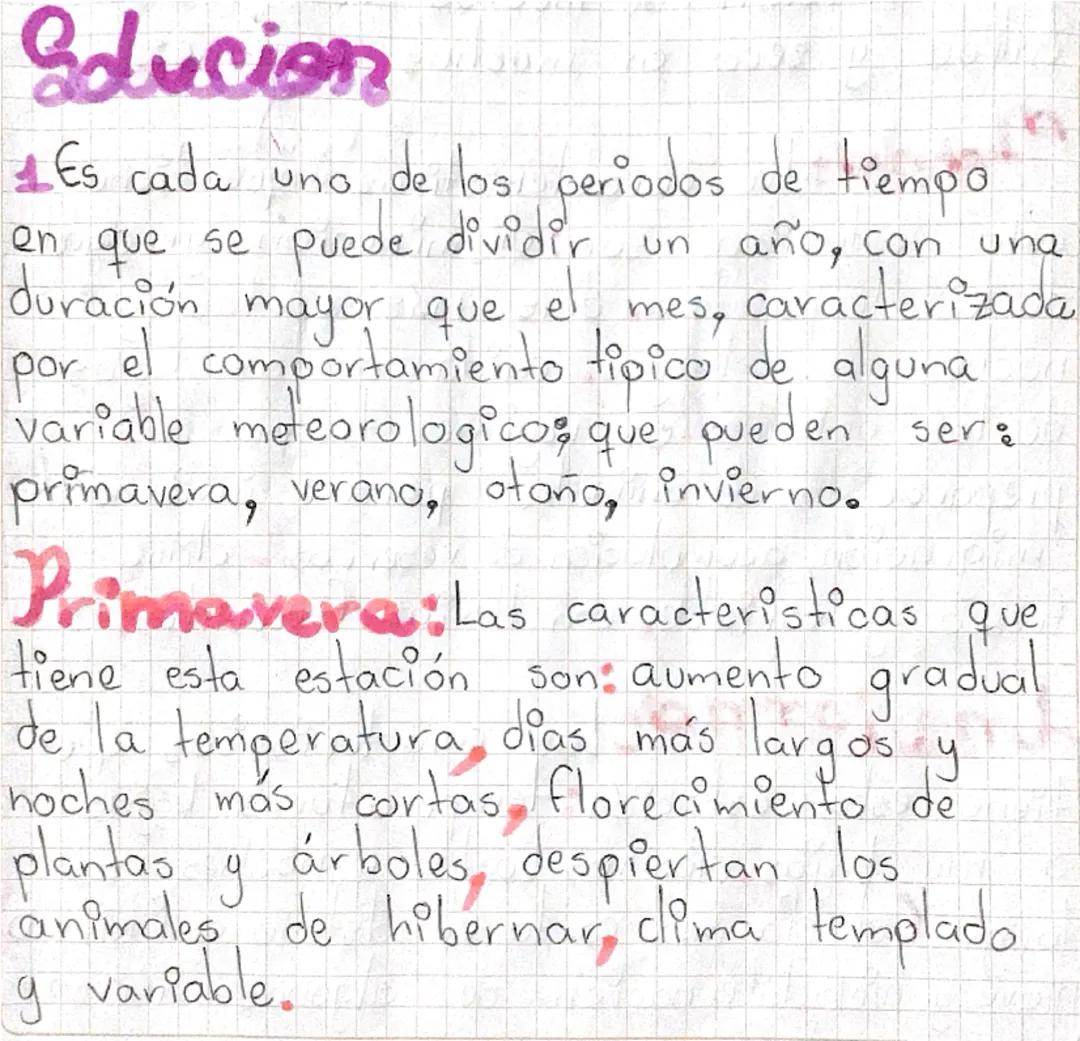 Solucion
1 Es cada uno de los periodos de tiempo
en que se puede dividir un año, con una
duración mayor que el mes, caracterizada
por el comportamiento tipico de alguna
variable meteorologico; que pueden ser:
primavera, verano, otoño, invierno.
Primavera: Las caracteristicas que
tiene esta estación son: aumento gradual
de la temperatura, dias más largos y
noches más cortas, florecimiento de
plantas y árboles, despiertan los
animales de hibernar, clima templado
y variable.